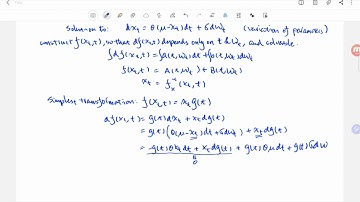 Solution to: dxₜ = θ(μ-xₜ)dt + σdWₜ (variation of parameters)
construct f(xₜ,t), so that df(xₜ,t) depends only on t & Wₜ, and solvable.
∫df(xₜ,t) = ∫a(t,Wₜ)dt + ∫b(t,Wₜ)dWₜ
f(xₜ,t) = A(t,Wₜ) + B(t,Wₜ)
xₜ = f⁻¹ₓ(xₜ,t)
Simplest transformation: f(xₜ,t) = xₜg(t)
df(xₜ,t) = g(t)dxₜ + xₜdg(t)
= g(t)(θ(μ-xₜ)dt + σdWₜ) + xₜdg(t)
= -g(t)θxₜdt + xₜdg(t) + g(t)θμdt + g(t)σdW
0